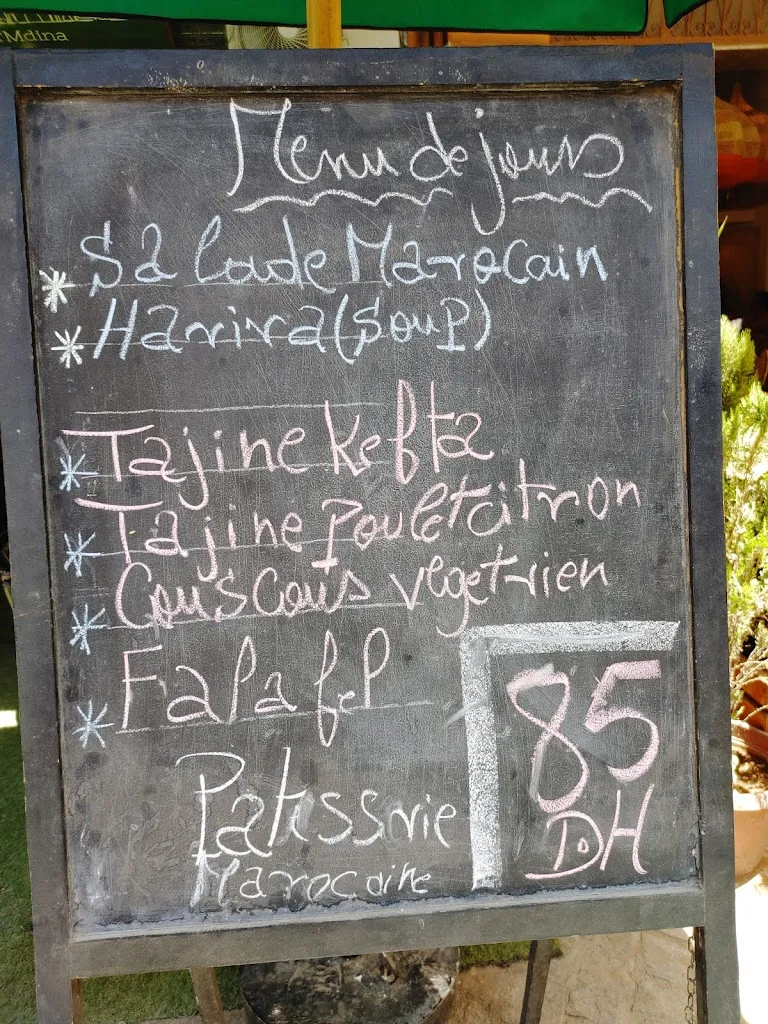 Mdina
Menu de jours
Salade Marocain
Harira (soup)
Tajine kefta
Tajine Poulet citron
Couscous veget-rien
Falafel
Patissrie
Marocaine
85
DH